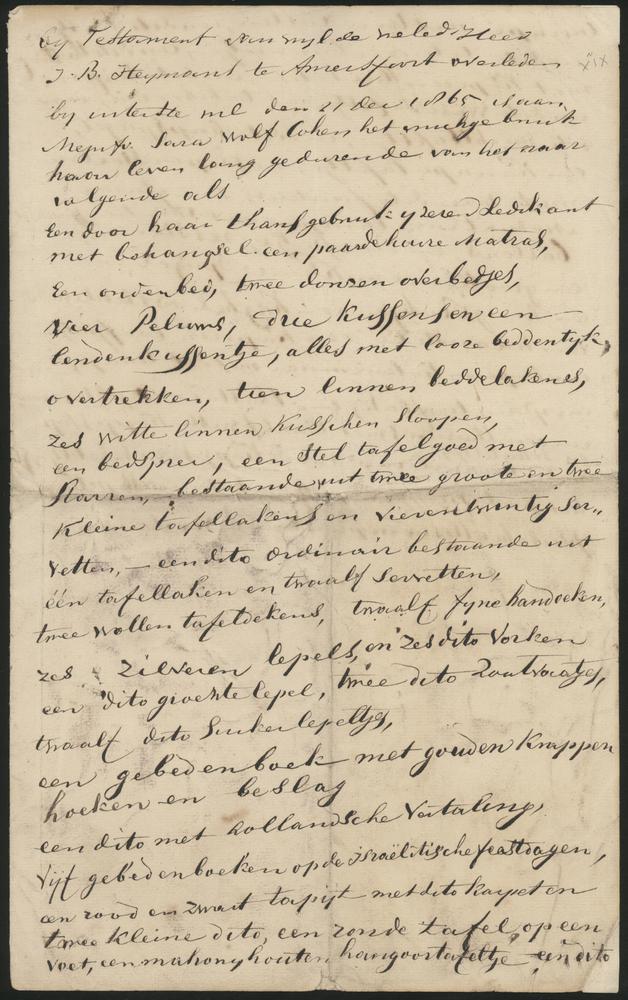 by Testament van wyl. de weled Heer
J. B. Heymans te Amersfoort overleden XIX
by uiterste wil den 21 Dec 1865 is aan
Mejufv. Sara Wolf Cohen het vruchgebruik
haar leven lang gedurende van het naar
volgende als
Een door haar thans gebruik yzere Ledikant
met behangsel een paardehaire Matras,
Een onderbed, twee donzen overbedjes,
Vier Peluws, drie Kussens en een
lendenkussentje, alles met looze beddentyk,
overtrekken, tien linnen beddelakenes,
zes witte linnen Kusschen Sloopen,
een bedsprei, een Stel tafelgoed met
Starren, bestaande uit twee groote en twee
Kleine tafellakens en vierentwintig Ser„
vetten, — een dito ordinair bestaande uit
één tafellaken en twaalf Servetten,
twee wollen tafeldekens, twaalf fyne handoeken,
zes zilveren lepels, en zes dito Vorken
een dito groente lepel, twee dito Zoutvaatjes,
twaalf dito Suikerlepeltjes,
een gebedenboek met gouden Knappen
hoeken en beslag
een dito met Hollandsche Vertaling,
Vijf gebedenboeken op de israëlitische feestdagen,
een rood en zwart tapijt met dito karpet en
twee kleine dito, een ronde tafel op een
voet, een mahonyhouten hangoortafeltje een dito